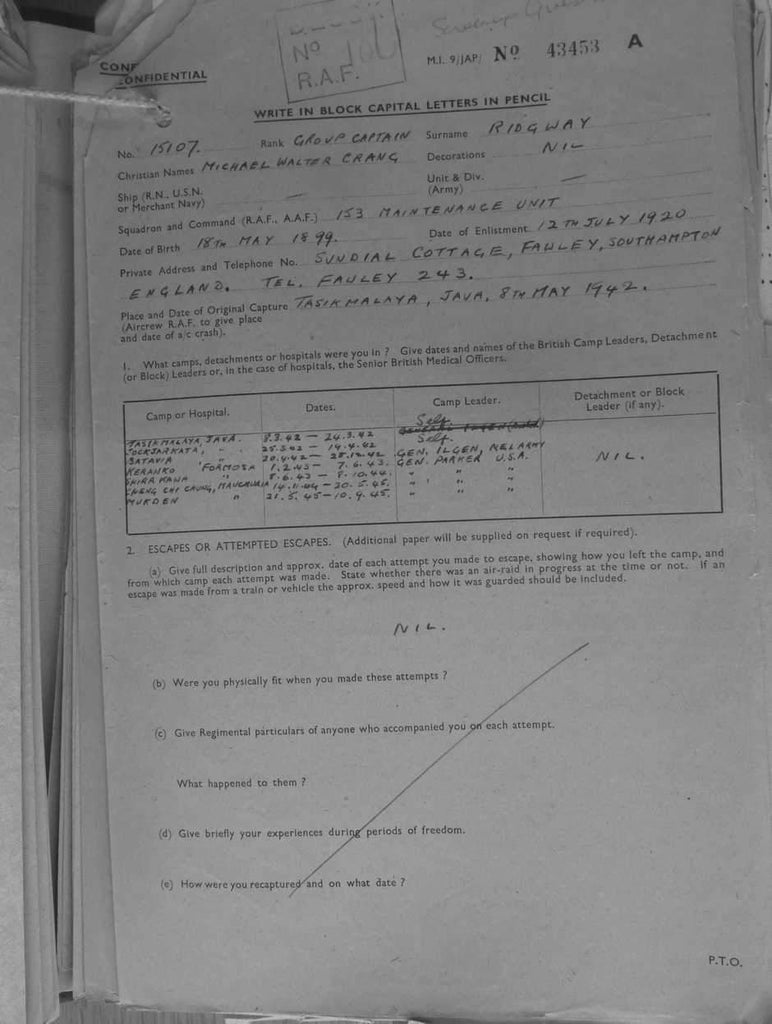 CONFIDENTIAL
No
R.A.F.
M.I. 9/JAP/ No 43453 A
WRITE IN BLOCK CAPITAL LETTERS IN PENCIL
No. 15107. Rank GROUP CAPTAIN Surname RIDGWAY
Christian Names MICHAEL WALTER CRANG Decorations NIL
Ship (R.N., U.S.N. or Merchant Navy) — Unit & Div. (Army) —
Squadron and Command (R.A.F., A.A.F.) 153 MAINTENANCE UNIT
Date of Birth 18TH MAY 1899. Date of Enlistment 12TH JULY 1920
Private Address and Telephone No. SUNDIAL COTTAGE, FAWLEY, SOUTHAMPTON
ENGLAND. TEL. FAWLEY 243.
Place and Date of Original Capture TASIKMALAYA, JAVA, 8TH MAY 1942.
(Aircrew R.A.F. to give place
and date of a/c crash).
1. What camps, detachments or hospitals were you in ? Give dates and names of the British Camp Leaders, Detachment
(or Block) Leaders or, in the case of hospitals, the Senior British Medical Officers.
Camp or Hospital. Dates. Camp Leader. Detachment or Block Leader (if any).
TASIKMALAYA, JAVA. 8.3.42 — 24.3.42 Self
25.3.42 — 19.4.42 Self.
BATAVIA " 20.4.42 — 28.12.42 GEN. ILGEN, NEL ARMY NIL.
KERANKO FORMOSA 1.2.43 — 7.6.43. GEN. PARKER U.S.A.
SHIRAKAWA " 8.6.43 — 8.10.44. " " "
CHENG CHI CAUNG, MANCHURIA 14.11.44 — 20.5.45. " " "
MUKDEN " 21.5.45 — 10.9.45. " " "
2. ESCAPES OR ATTEMPTED ESCAPES. (Additional paper will be supplied on request if required).
(a) Give full description and approx. date of each attempt you made to escape, showing how you left the camp, and
from which camp each attempt was made. State whether there was an air-raid in progress at the time or not. If an
escape was made from a train or vehicle the approx. speed and how it was guarded should be included.
NIL.
(b) Were you physically fit when you made these attempts ?
(c) Give Regimental particulars of anyone who accompanied you on each attempt.
What happened to them ?
(d) Give briefly your experiences during periods of freedom.
(e) How were you recaptured and on what date ?
P.T.O.